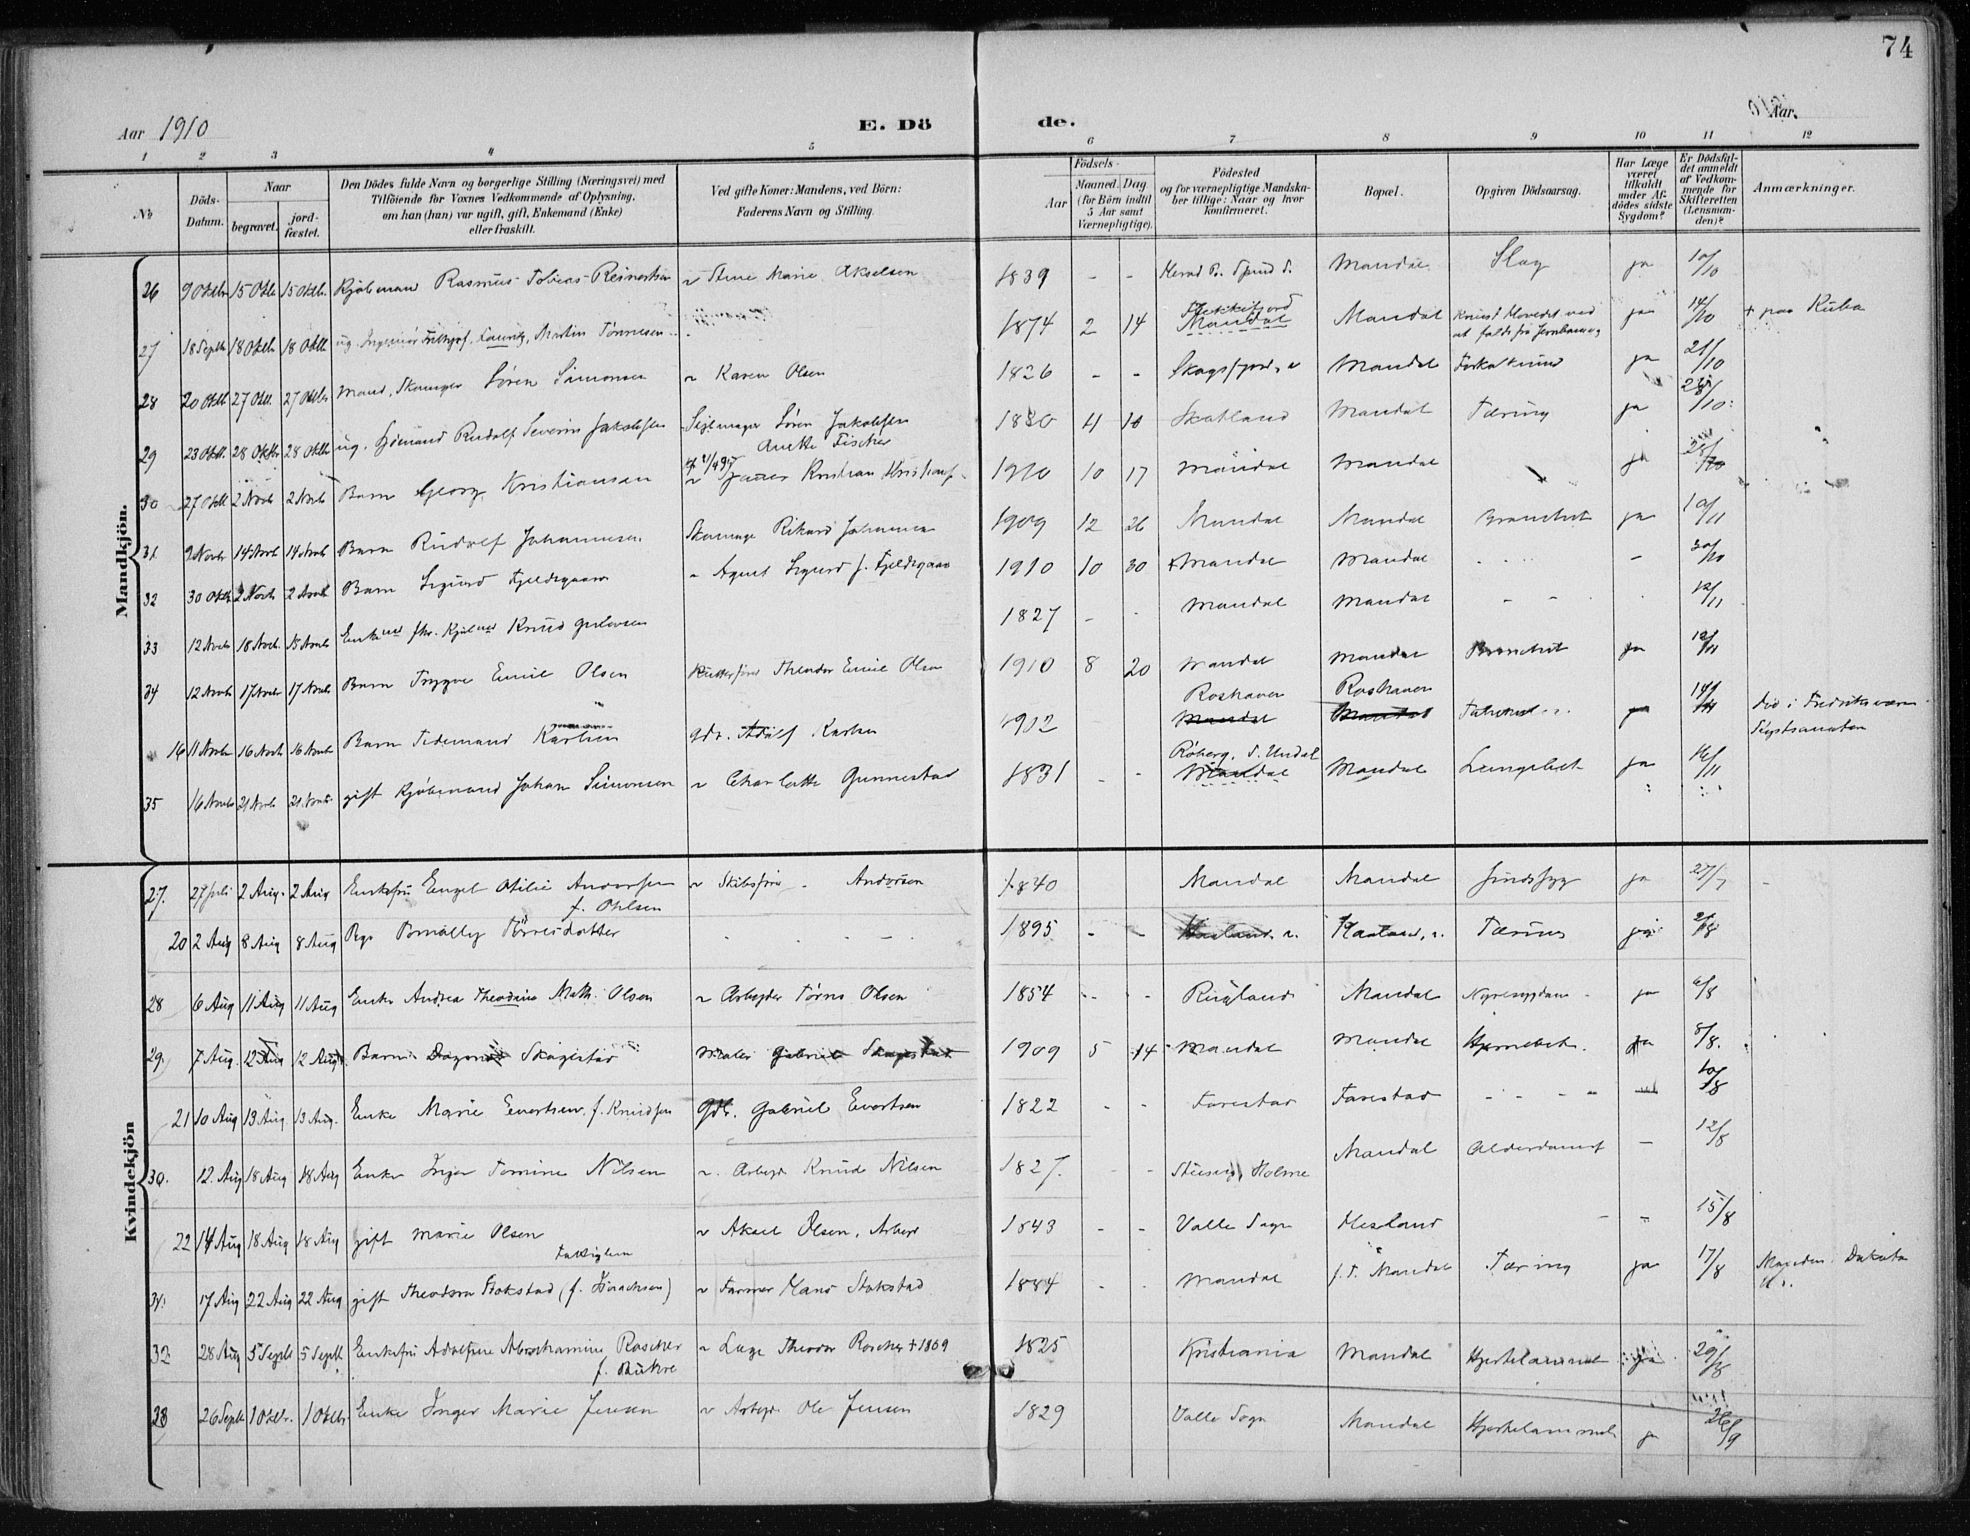 74
Aar 1910
E. Dö
de.
Aar.
1 2 3 4 5 6 7 8 9 10 11 12
No
Döds-Datum.
Naar
begravet.
jord-fæstet.
Den Dödes fulde Navn og borgerlige Stilling (Næringsvei) med
Tilföiende for Voxnes Vedkommende af Oplysning,
om han (hun) var ugift, gift, Enkemand (Enke)
eller fraskilt.
Ved gifte Koner: Mandens, ved Börn:
Faderens Navn og Stilling.
Födsels-
Aar
Maaned. Dag
(for Börn indtil
5 Aar samt
Værnepligtige).
Födested
og for værnepligtige Mandska-
ber tillige: Naar og hvor
konfirmeret.
Bopæl.
Opgiven Dödsaarsag.
Har Læge
været
tilkaldt
under Af-
dödes sidste
Sygdom?
Er Dödsfal-
det anmeldt
af Vedkom-
mende for
Skifteretten
(Lensman-
den)?
Anmærkninger.
Mandkjön.
26 9 Oktbr 15 Oktb 15 Oktb. Kjöbmand Rasmus Tobias Reinertsen ~ Anne Marie Akselsen 1839 - - Mandal Slag ja 10/10
Flekkefjord
27 18 Septb 18 Oktb 18 Oktb ug. Ingeniör Fridtjof Lauritz Martin Tönnesen 1874 2 14 Mandal Mandal Knust Hovedet ved ja 14/10 + paa Kuba
at falde fra Jernbanevg
28 20 Oktb 27 Okt. 27 Oktb Mand, Skomager Sören Simonsen ~ Karen Olsen 1826 - - Mandal ja 21/10
29 23 Oktb. 28 Oktb 28 Oktb ug. Sjömand Rudolf Severin Jakobsen Seglmager Sören Jakobsen 4 10 Skotland Mandal Tæring ja
Anette Fischer
30 27 Oktb 2 Novb 2 Novb Barn Georg Kristiansen 1910 10 17 Mandal Mandal ja
31 9 Novb 14 Novb 14 Novb Barn Rudolf Johannesen Skomager Rikard Johannesen 1909 12 26 Mandal Mandal Bronchit ja 10/11
32 30 Oktb 2 Novb 2 Novb Barn Sigurd Fjeldsgaard ~ Agent Sigurd J. Fjeldsgaard 1910 10 30 Mandal Mandal - 30/10
33 12 Novb 18 Novb. 18 Novb Enkemd fhv. Kjöbmd Knud Gulovsen 1827 - - Mandal Mandal - - 12/11
34 12 Novb 17 Novb 17 Novb Barn Trygve Emil Olsen Theodor Emil Olsen 1910 8 20 Mandal Mandal Bronchit ja 12/11
Roshaven Roshaven
16 11 Novb 16 Novb 16 Novb Barn Tidemand Karlsen gdr. Adolf Karlsen 1902 Mandal Mandal ja 14/11 död i Fredriksværn
Kystsanator.
Röberg, S. Undal
35 16 Novb 21 Novb 21 Novb. gift Kjöbmand Johan Simonsen ~ Charlotte Gunnestad 1831 - - Mandal Mandal Lungebet ja 16/11
Kvindekjön
27. 27 Juli 2 Aug. 2 Aug Enkefru Engel Otilie Andersen ~ Skibsförer - Andersen 1840 Mandal Mandal Sindssyg ja 27/7 -
f. Ohlsen
20 2 Aug 8 Aug 8 Aug Pge Bmally Törresdatter - - - - 1895 - - Haaland, a. Haaland, a. Tæring ja 2/8
28 6 Aug 11 Aug 11 Aug Enke Andrea Theodine Math. Olsen ~ Arbeyder Törres Olsen 1854 - - Mandal Nyresygdom ja 6/8
29. 7 Aug. 12 Aug 12 Aug. Barn Dagmar Skagestad Maler Gabriel Skagestad 1909 5 14 Mandal Mandal Hjernebet. ja 8/8.
21 10 Aug 13 Aug. 13 Aug. Enke Marie Evertsen f. Knudsen Gdb. Gabriel Evertsen 1822 - - Farestad Farestad - - - - 10/8
30. 12. Aug 18 Aug 18 Aug Enke Inger Tomine Nilsen ~ Arbeyd. Knud Nilsen 1827. - - Holme Mandal Alderdomsf - 12/8
22 14 Aug 18 Aug 18 Aug gift Marie Olsen ~ Aksel Olsen, Arbeyd 1843 - - Valle Sogn Hesland - - 15/8
31. 17 Aug 22 Aug 22 Aug gift Theodora Stokstad (f. Isaachsen) ~ Farmer Hans Stokstad 1884 - - Mandal f.T. Mandal Tæring ja 17/8 Manden. Dakota
32 28 Aug 5 Septb 5 Septb Enkefru Adolfine Abrahamine Roscher ~ Læge Theodor Roscher + 1869 1825 Kristiania Mandal Hjertelammelse ja 29/8
33 26 Septb 1 Oktbr. 1 Oktbr Enke Inger Marie Jensen ~ Arbeyd. Ole Jensen 1829 Valle Sogn Mandal Hjertelammelse ja 26/9